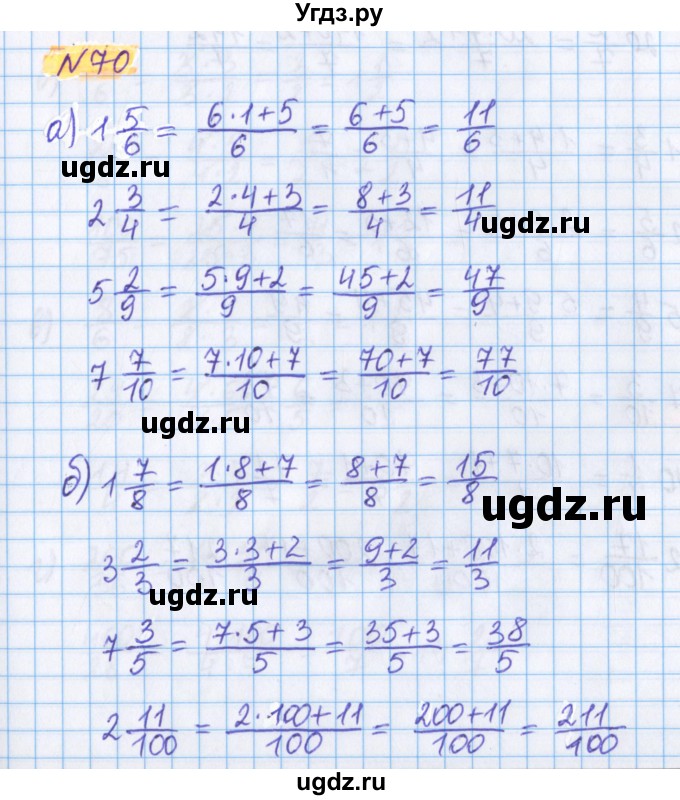 Угдз.ру
N70
а) 1 5/6 = (6·1+5)/6 = (6+5)/6 = 11/6
ugdz.ru
2 3/4 = (2·4+3)/4 = (8+3)/4 = 11/4
ugdz.ru
5 2/9 = (5·9+2)/9 = (45+2)/9 = 47/9
7 7/10 = (7·10+7)/10 = (70+7)/10 = 77/10
ugdz.ru
б) 1 7/8 = (1·8+7)/8 = (8+7)/8 = 15/8
ugdz.ru
3 2/3 = (3·3+2)/3 = (9+2)/3 = 11/3
ugdz.ru
7 3/5 = (7·5+3)/5 = (35+3)/5 = 38/5
2 11/100 = (2·100+11)/100 = (200+11)/100 = 211/100
ugdz.ru